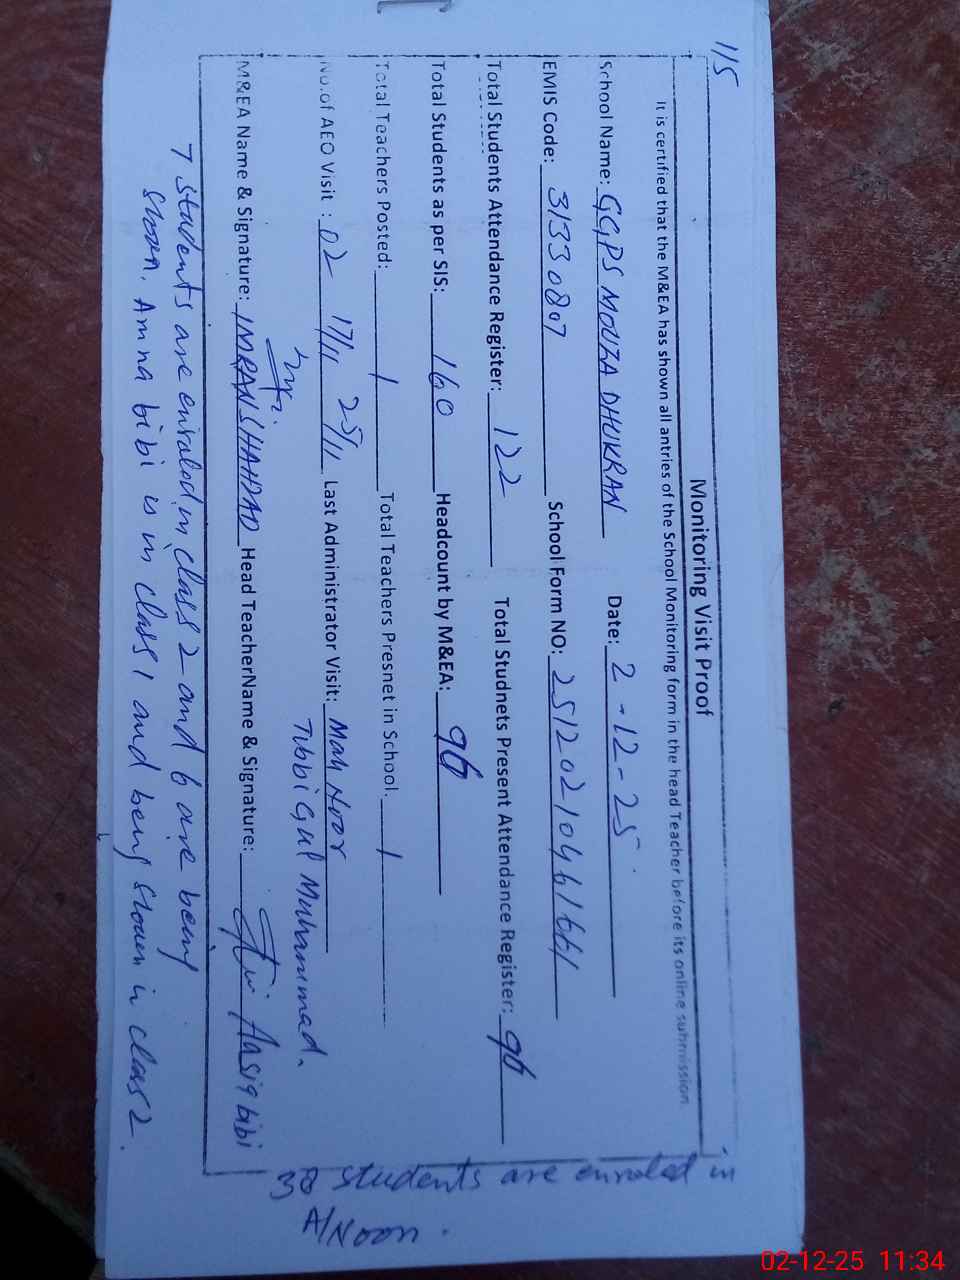 115
Monitoring Visit Proof
It is certified that the M&EA has shown all antries of the School Monitoring form in the head Teacher before its online submission
School Name: GGPS MOUZA DHUKRAN Date: 2-12-25
EMIS Code: 31330807 School Form NO: 251202104661661
Total Students Attendance Register: 122 Total Studnets Present Attendance Register: 96
Total Students as per SIS: 160 Headcount by M&EA: 96
Total Teachers Posted: 1 Total Teachers Presnet in School: 1
No.of AEO Visit : 02 17/11 25/11 Last Administrator Visit: Mah Noor
Tibbi Gul Muhammad.
M&EA Name & Signature: IMRAN SHAHDAD Head TeacherName & Signature: Aasia bibi
7 students are enroled in class 2 and 6 are being
shown. Amna bibi is in class 1 and being shown in class 2.
38 students are enroled in
A/Noon.
02-12-25 11:34